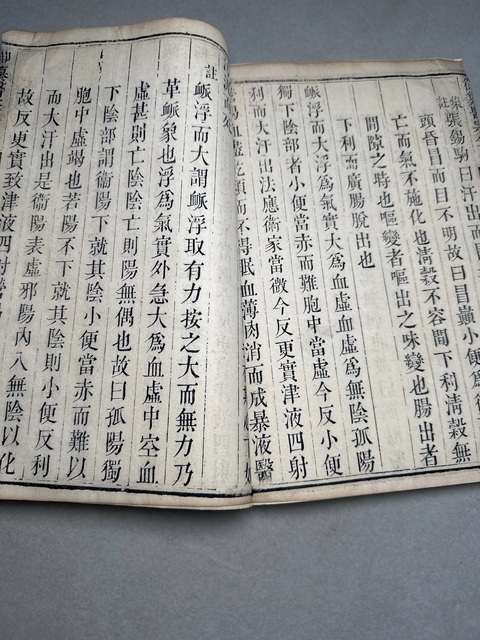 集註張錫駒曰汗出而
頭昏目而目不明故曰目
亡而氣不施化也清穀不容間下利清穀無
間隙之時也嘔變者嘔出之味變也腸出者
下利而廣腸脫出也
脈浮而大浮為氣實大為血虛血虛為無陰孤陽
獨下陰部者小便當赤而難胞中當虛今反小便
利而大汗出法應衛家當微今反更實津液四射
血盡煩而不得眠血薄肉消而成暴液醫
註
脈浮而大謂脈浮取有力按之大而無力乃
革脈象也浮為氣實外急大為血虛中空血
虛甚則亡陰陰亡則陽無偶也故曰孤陽獨
下陰部謂衛陽下就其陰小便當赤而難以
胞中虛竭也若陽不下就其陰則小便反利
而大汗出是衛陽表虛邪陽內入無陰以化
故反更實致津液四射